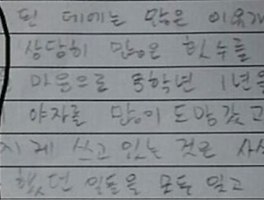 된 데에는 많은 이유가
상당히 많은 횟수를
마음으로 3학년 1년을
야자를 많이 도망갔고
지게 쓰고 있는 것은 사실
했던 일들을 모두 잊고